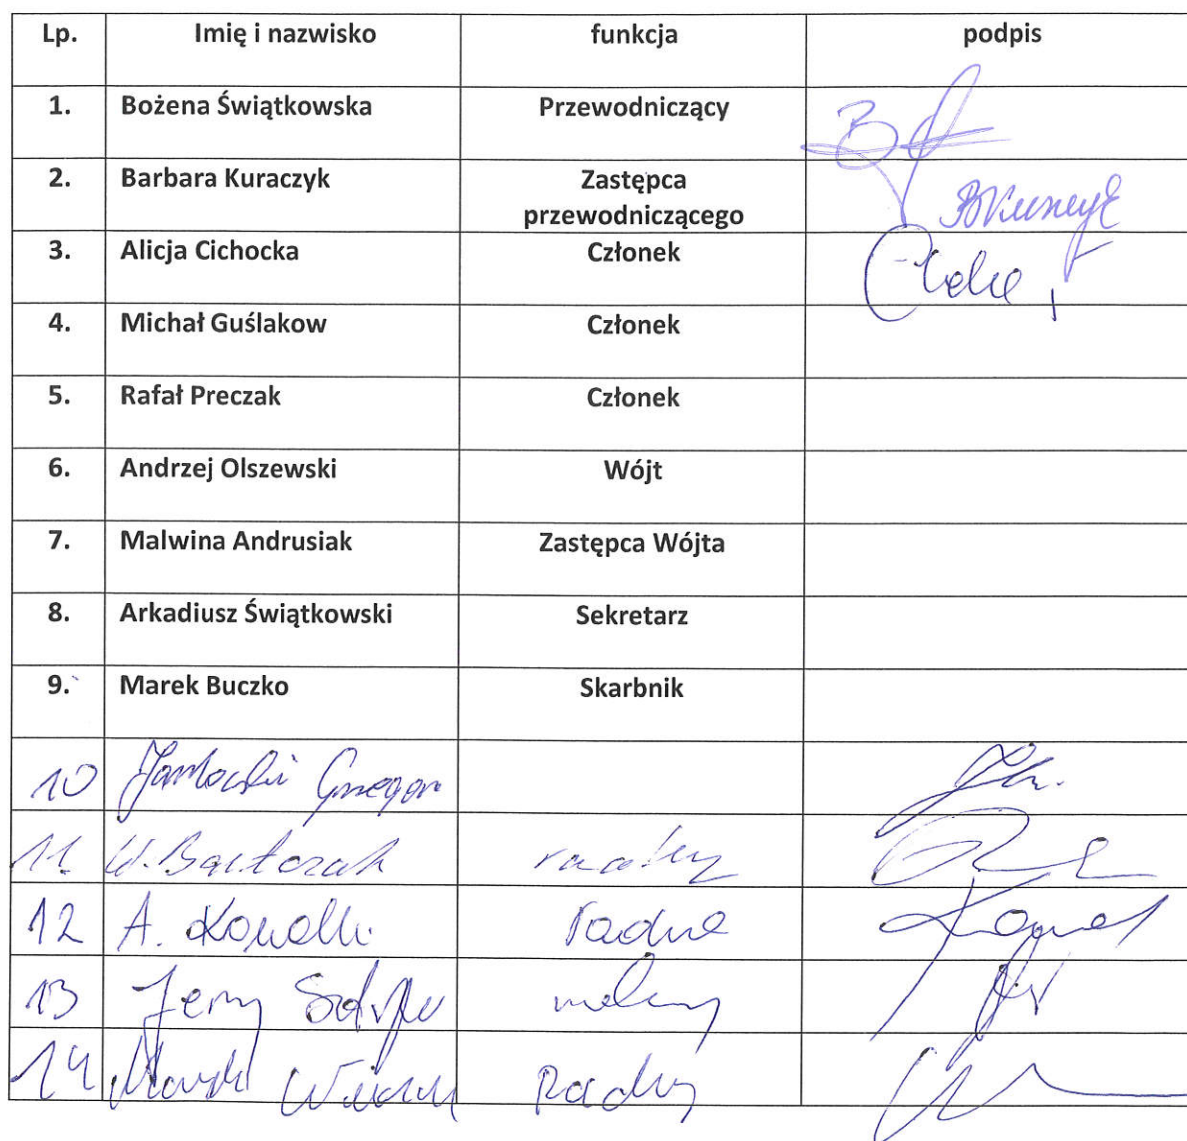 Lp. Imię i nazwisko funkcja podpis
1. Bożena Świątkowska Przewodniczący
2. Barbara Kuraczyk Zastępca
przewodniczącego
3. Alicja Cichocka Członek
4. Michał Guślakow Członek
5. Rafał Preczak Członek
6. Andrzej Olszewski Wójt
7. Malwina Andrusiak Zastępca Wójta
8. Arkadiusz Świątkowski Sekretarz
9. Marek Buczko Skarbnik
10
11. W. Bartczak radny
12 A. radna
13 Jerzy radny
14 Radny